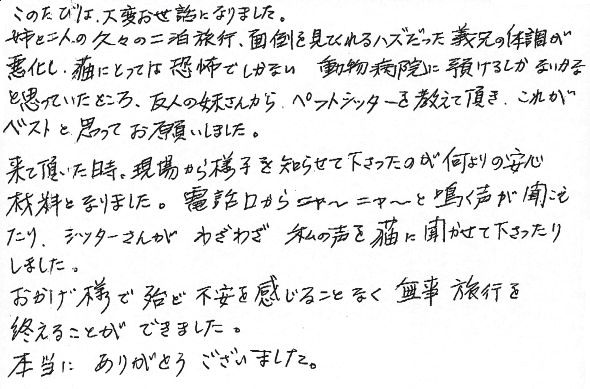 このたびは、大変お世話になりました。
姉と二人の久々の二泊旅行、面倒を見てくれるハズだった義兄の体調が
悪化し、猫にとっては恐怖でしかない 動物病院に預けるしかないかな
と思っていたところ、友人の妹さんから、ペットシッターを教えて頂き、これが
ベストと思ってお願いしました。
来て頂いた日時、現場から様子を知らせて下さったのが何よりの安心
材料となりました。電話口からニャ〜ニャ〜と鳴く声が聞こえ
たり、シッターさんが わざわざ 私の声を猫に聞かせて下さったり
しました。
おかげ様で殆ど不安を感じることなく無事旅行を
終えることができました。
本当に ありがとうございました。